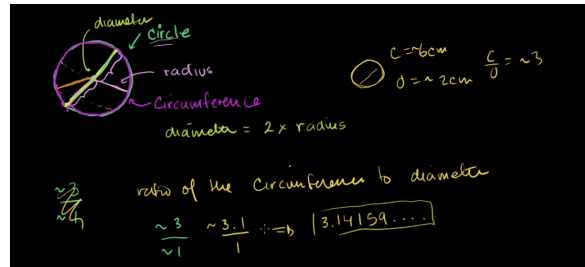 diameter
circle
radius
Circumference
diameter = 2 × radius
C = ~6cm
D = ~2cm
C/D = ~3
ratio of the Circumference to diameter
~3/~1
~3.1/1
3.14159....